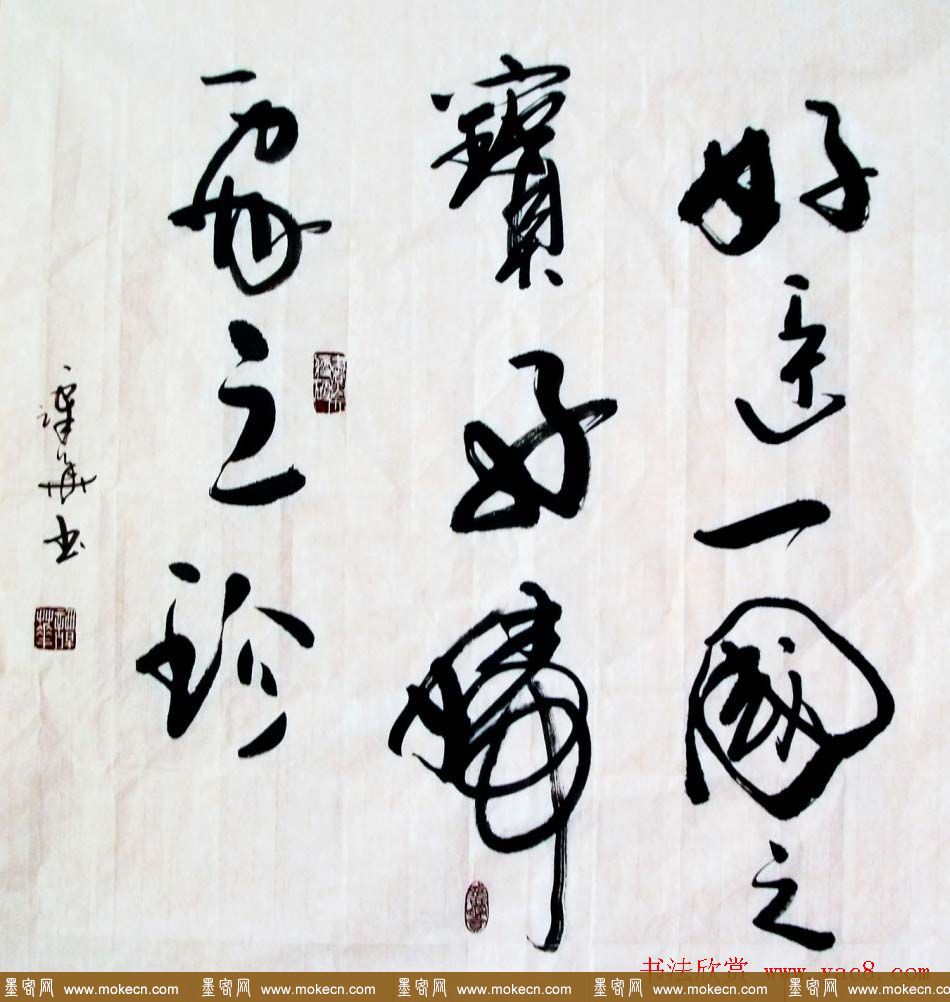 好一國之
寶好婦
一家之珍
譚華书
书法欣赏 www.yac8.com
墨客网 www.mokecn.com 墨客网 www.mokecn.com 墨客网 www.mokecn.com 墨客网 www.mokecn.com 墨客网 www.mokecn.co